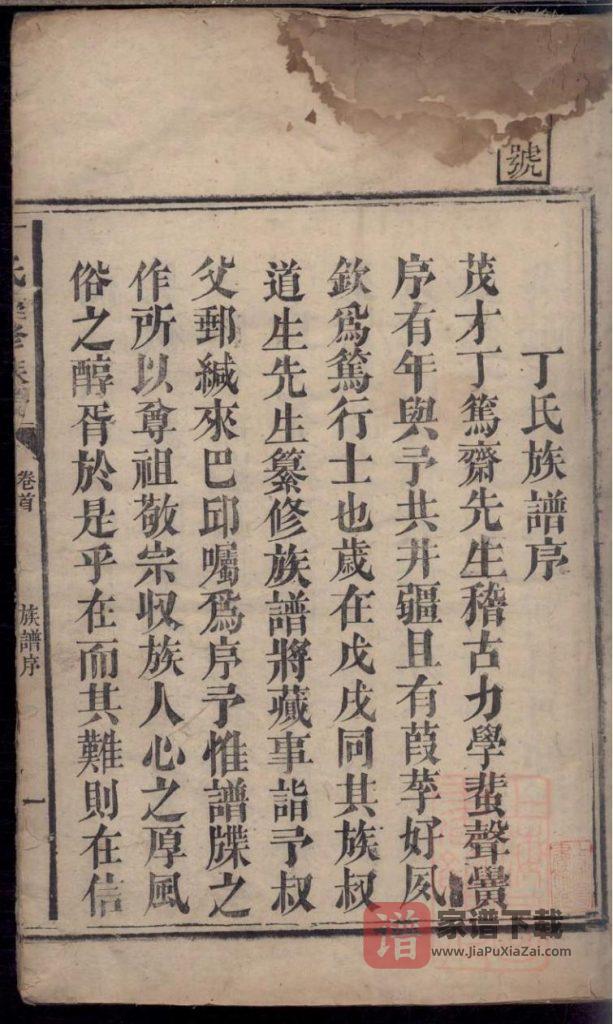 號
丁氏族譜序
茂才丁篤齋先生稽古力學蜚聲黌
序有年與予共井疆且有葭莩好夙
欽爲篤行士也歲在戊戌同其族叔
道生先生纂修族譜將蕆事詣予叔
父郵緘來巴邱囑爲序予惟譜牒之
作所以尊祖敬宗収族人心之厚風
俗之醇胥於是乎在而其難則在信
氏 修族譜
卷首
族譜序
一
谱
家谱下载
www.JiaPuXiaZai.com